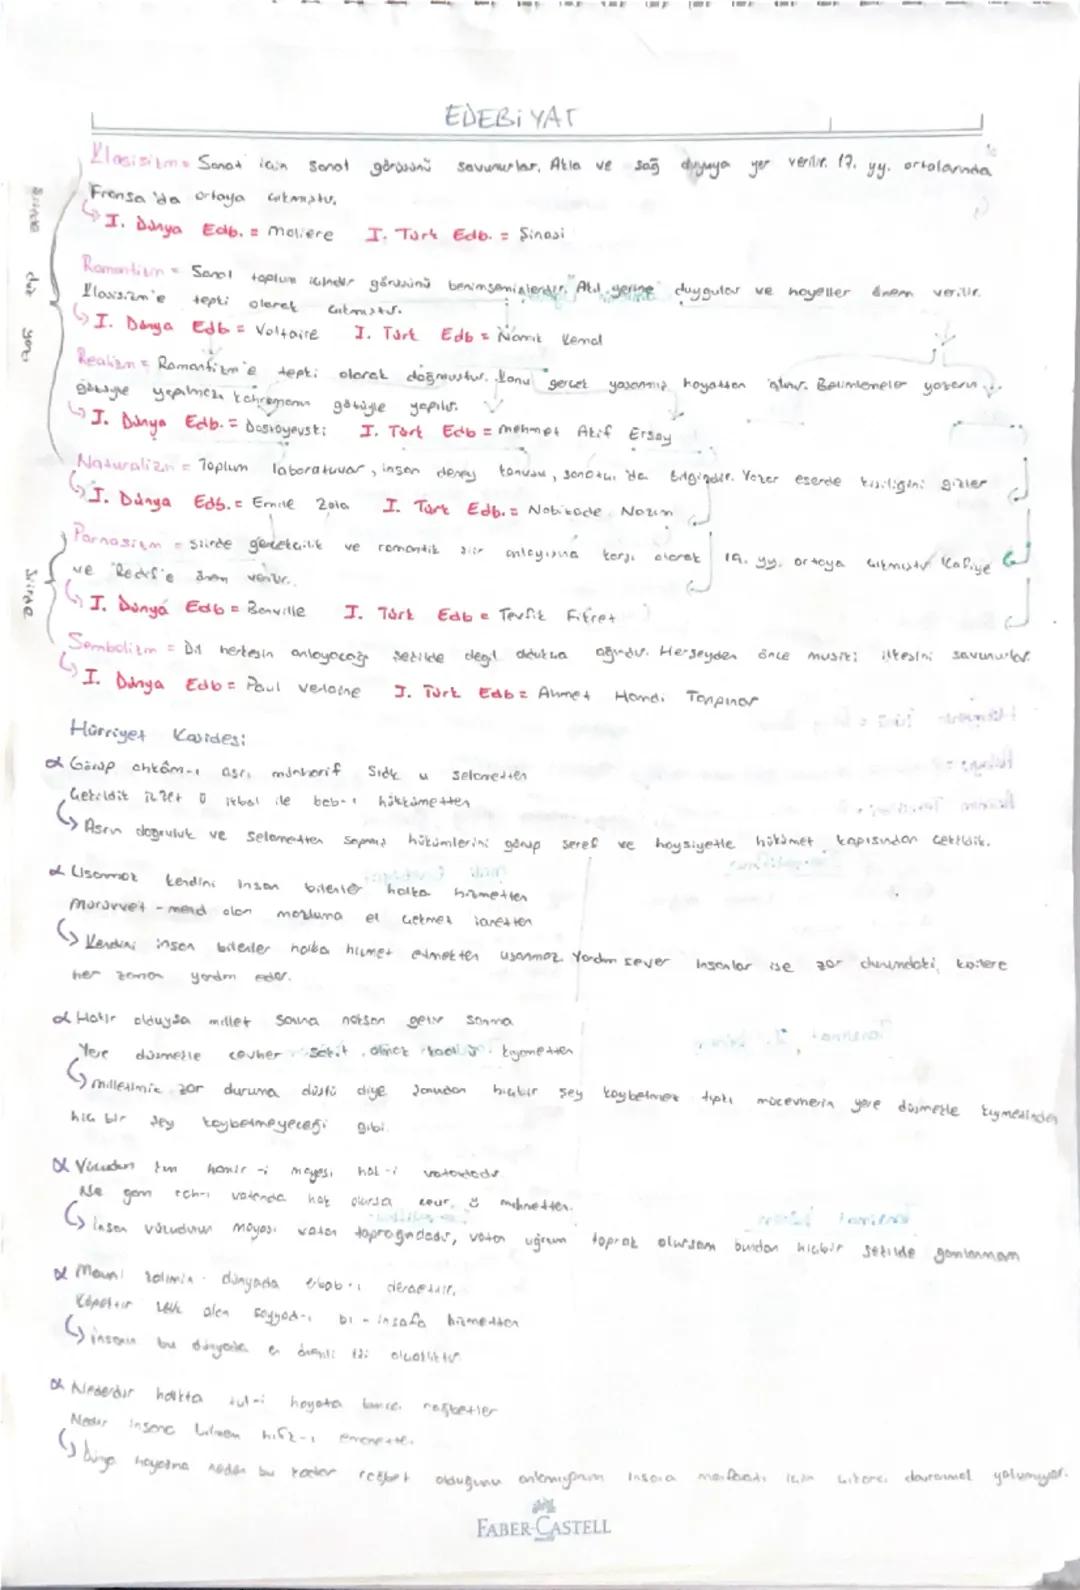 EDEBİYAT
Klasisizm = Sanat için sanat görüşünü savunurlar. Akla ve sağ duyuya yer verilir. 17. yy. ortalarında
Fransa'da ortaya çıkmıştır.
I. Dünya Edb. = Moliere I. Türk Edb. = Şinasi
Romantizm = Sanat toplum içindir görüşünü benimsemişlerdir. Akıl yerine duygular ve hayeller önem verilir.
Klasisizm'e tepki olarak çıkmıştır.
I. Dünya Edb = Voltaire I. Türk Edb = Namık Kemal
Realizm = Romantizm'e tepki olarak doğmuştur. Konu gerçek yaşanmış hayattan alınır. Betimlemeler yazarın
gözüyle yapılmaz kahramanın gözüyle yapılır.
I. Dünya Edb. = Dostoyevski I. Türk Edb = Mehmet Akif Ersoy
Naturalizm = Toplum laboratuvar, insan deney konusu, sanatçı da bilgindir. Yazar eserde kişiliğini gizler
I. Dünya Edb. = Emile Zola I. Türk Edb. = Nabizade Nazım
Parnasizm = Şiirde gerçekçilik ve romantik şiir anlayışına karşı olarak 19. yy. ortaya çıkmıştır Kafiye
ve Redif'e önem verilir.
I. Dünya Edb = Banville I. Türk Edb = Tevfik Fikret
Sembolizm = Dil herkesin anlayacağı şekilde değil oldukça ağırdır. Herşeyden önce musiki ilkesini savunurlar.
I. Dünya Edb = Paul Verlaine I. Türk Edb = Ahmet Hamdi Tanpınar
Şiirde
Hürriyet Kasidesi
Görüp ahkâm-ı asrı münharif sıdk u selametten
Çekildik izzet ü ikbal ile bab-ı hükümetten
Asrın doğruluk ve selametten sapmış hükümlerini görüp şeref ve haysiyetle hükümet kapısından çekildik.
Usanmaz kendini insan bilenler halka hizmetten
Mürüvvet-mend olan mazluma el çekmez ianetten
Kendini insan bilenler halka hizmet etmekten usanmaz. Yardım sever insanlar ise zor durumdaki kişilere
her zaman yardım eder.
Hakir olduysa millet şanına noksan gelir sanma
Yere düşmekle cevher sakıt olmaz kadr ü kıymetten
Milletimiz zor duruma düştü diye şanından hiçbir şey kaybetmez tıpkı mücevherin yere düşmekle kıymetinden
hiç bir şey kaybetmeyeceği gibi.
Vücudun kim hamir-i mayesi hâk-i vatandadır
Ne gam rah-ı vatanda hak olursa cevr ü mihnetten.
İnsan vücudunun mayası vatan toprağındadır, vatan uğruna toprak olursam bundan hiçbir şekilde gamlanmam
zalimin dünyada erbab-ı
Köpektir zevk alan sayyad-ı bi-insafa hizmetten
insanın bu dünyada en önemli
halkta tul-i hayata bunca rağbetler
Nedir insana bilmem hıfz-ı emanette.
Dünya hayatına neden bu kadar rağbet olduğunu anlamıyorum insana menfaati için
FABER-CASTELL